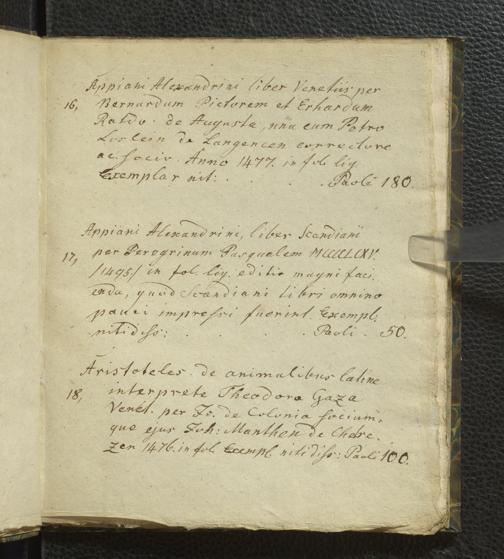 Appiani Alexandrini liber Venetiis per
16, Bernardum Pictorem et Erhardum
Ratdo. de Auguste, una cum Petro
Loslein de Langencen correctore
ac socio. Anno 1477. in fol. lig.
Exemplar nit: . . . . Paoli 180.
Appiani Alexandrini, liber Scandiani
17, per Peregrinum Pasqualem MCCCCLXXXXV.
/1495/ in fol. lig. editio magni faci
enda, quod Scandiani libri omnino
pauci impressi fuerint. Exempl.
nitidiss: . . . . Paoli . 50.
Aristoteles. de animalibus latine
18, interprete Theodoro Gaza
Venet. per Jo. de Colonia socium,
que ejus Joh: Manthen de Cherre.
zen 1476. in fol. Exempl nitidiss: Paoli 100.